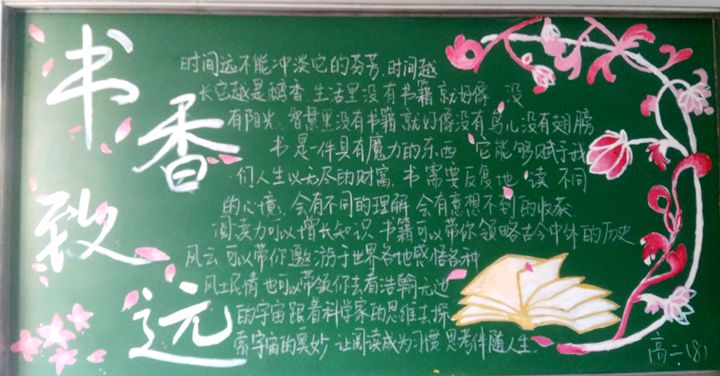 书香致远
时间远不能冲淡它的芬芳,时间越
长它越是醇香 生活里没有书籍就好像 没
有阳光,智慧里没有书籍就好像没有鸟儿没有翅膀
书是一件具有魔力的东西 它能够赋于我
们人生以无尽的财富,书需要反复地 读 不同
的心境,会有不同的理解 会有意想不到的收获.
阅读力可以增长知识 书籍可以带你领略古今中外的历史
风云 可以带你遨游于世界各地感悟各种
风土民情 也可以带领你去看浩翰无边
的宇宙 跟着科学家的思维去探
索宇宙的奥妙 让阅读成为习惯 思考伴随人生.
高二(8)